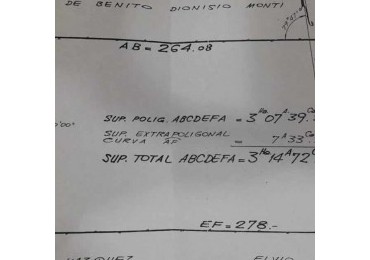 DE BENITO DIONISIO MONTI
AB = 264.08
SUP. POLIG. ABCDEFA = 3 Ha 07 A 39. Ca
SUP. EXTRAPOLIGONAL
CURVA AF = 7 A 33. Ca
SUP. TOTAL ABCDEFA = 3 Ha 14 A 72 C
EF = 278.-
ELVIO